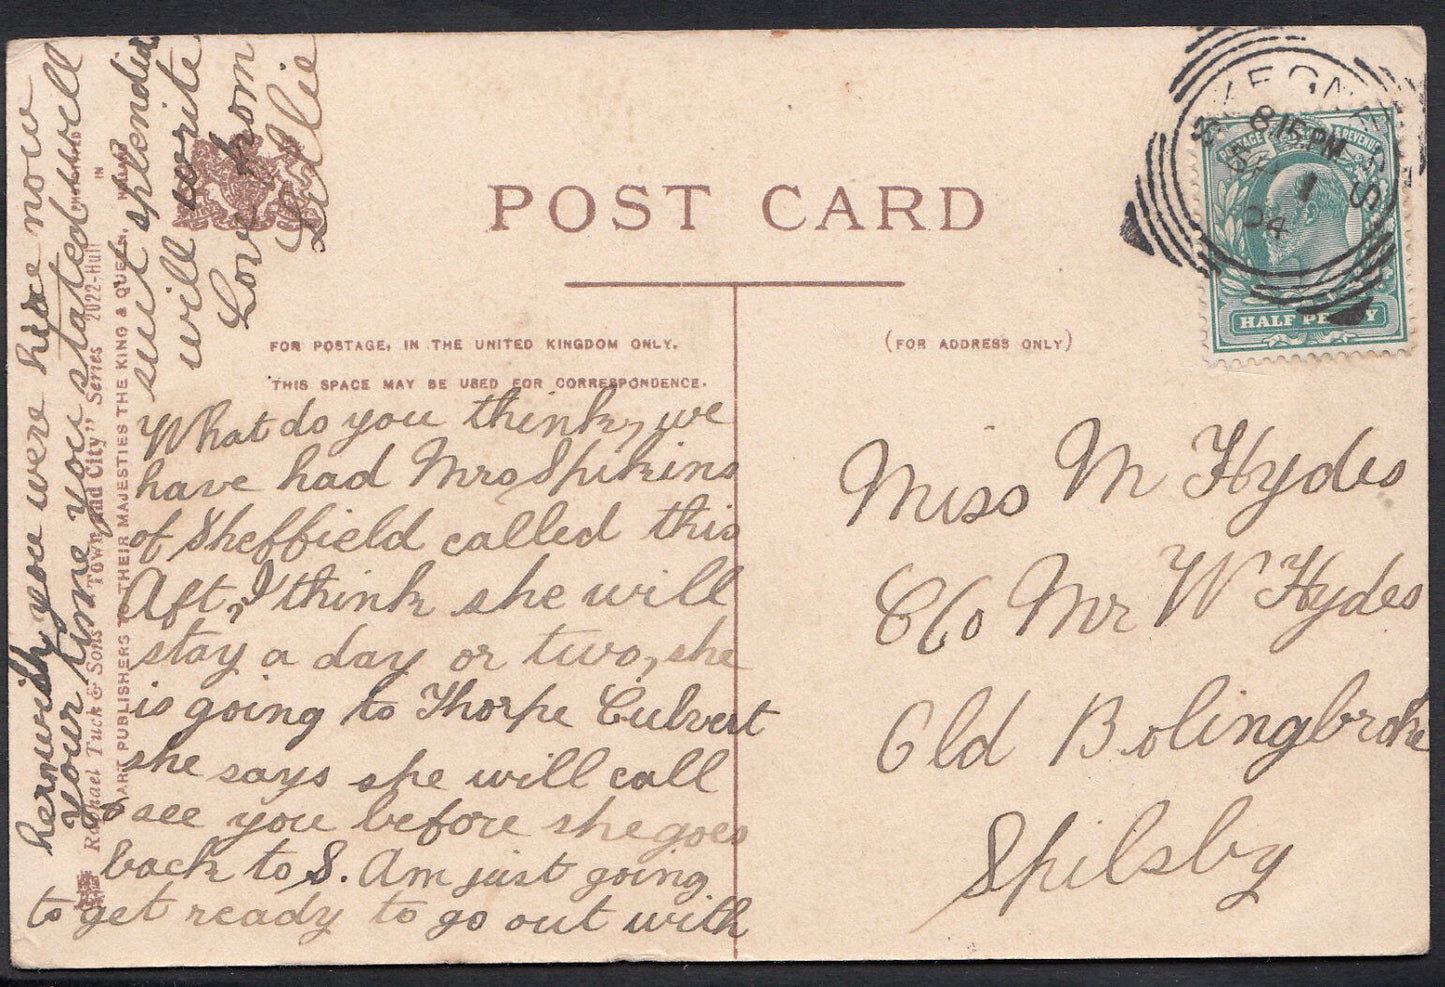 POST CARD
FOR POSTAGE, IN THE UNITED KINGDOM ONLY.
THIS SPACE MAY BE USED FOR CORRESPONDENCE.
(FOR ADDRESS ONLY)
What do you think, we
have had Mrs Spikins
of Sheffield called this
Aft, I think she will
stay a day or two, she
is going to Thorpe Culvert
she says she will call
& see you before she goes
back to S. Am just going
to get ready to go out with
her wish you were here now
your time you stated will
suit splendid
will write
Love from
Lillie
Miss M Hydes
C/o Mr W Hydes
Old Bolingbroke
Spilsby
SKEGNESS
8.15 PM
SP 1
04
POSTAGE & REVENUE
HALF PENNY
Raphael Tuck & Sons' "Town and City" Series 2022-Hull
ART PUBLISHERS TO THEIR MAJESTIES THE KING & QUEEN.
IN